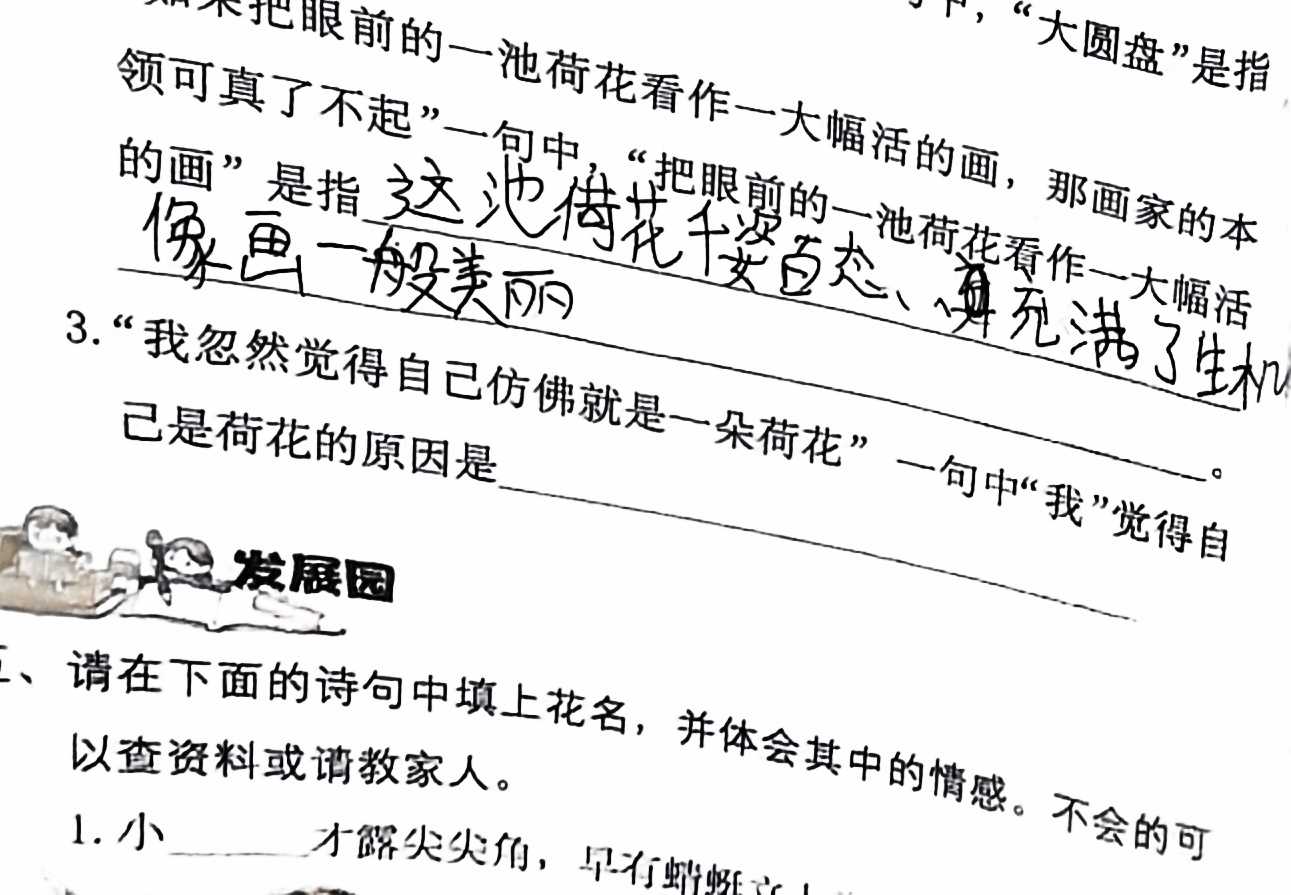 中，“大圆盘”是指
如果把眼前的一池荷花看作一大幅活的画，那画家的本
领可真了不起”一句中，“把眼前的一池荷花看作一大幅活
的画”是指这池荷花千姿百态、充满了生机
像画一般美丽。
3.“我忽然觉得自己仿佛就是一朵荷花”一句中“我”觉得自
己是荷花的原因是
发展园
五、请在下面的诗句中填上花名，并体会其中的情感。不会的可
以查资料或请教家人。
1. 小______才露尖尖角，早有蜻蜓立上